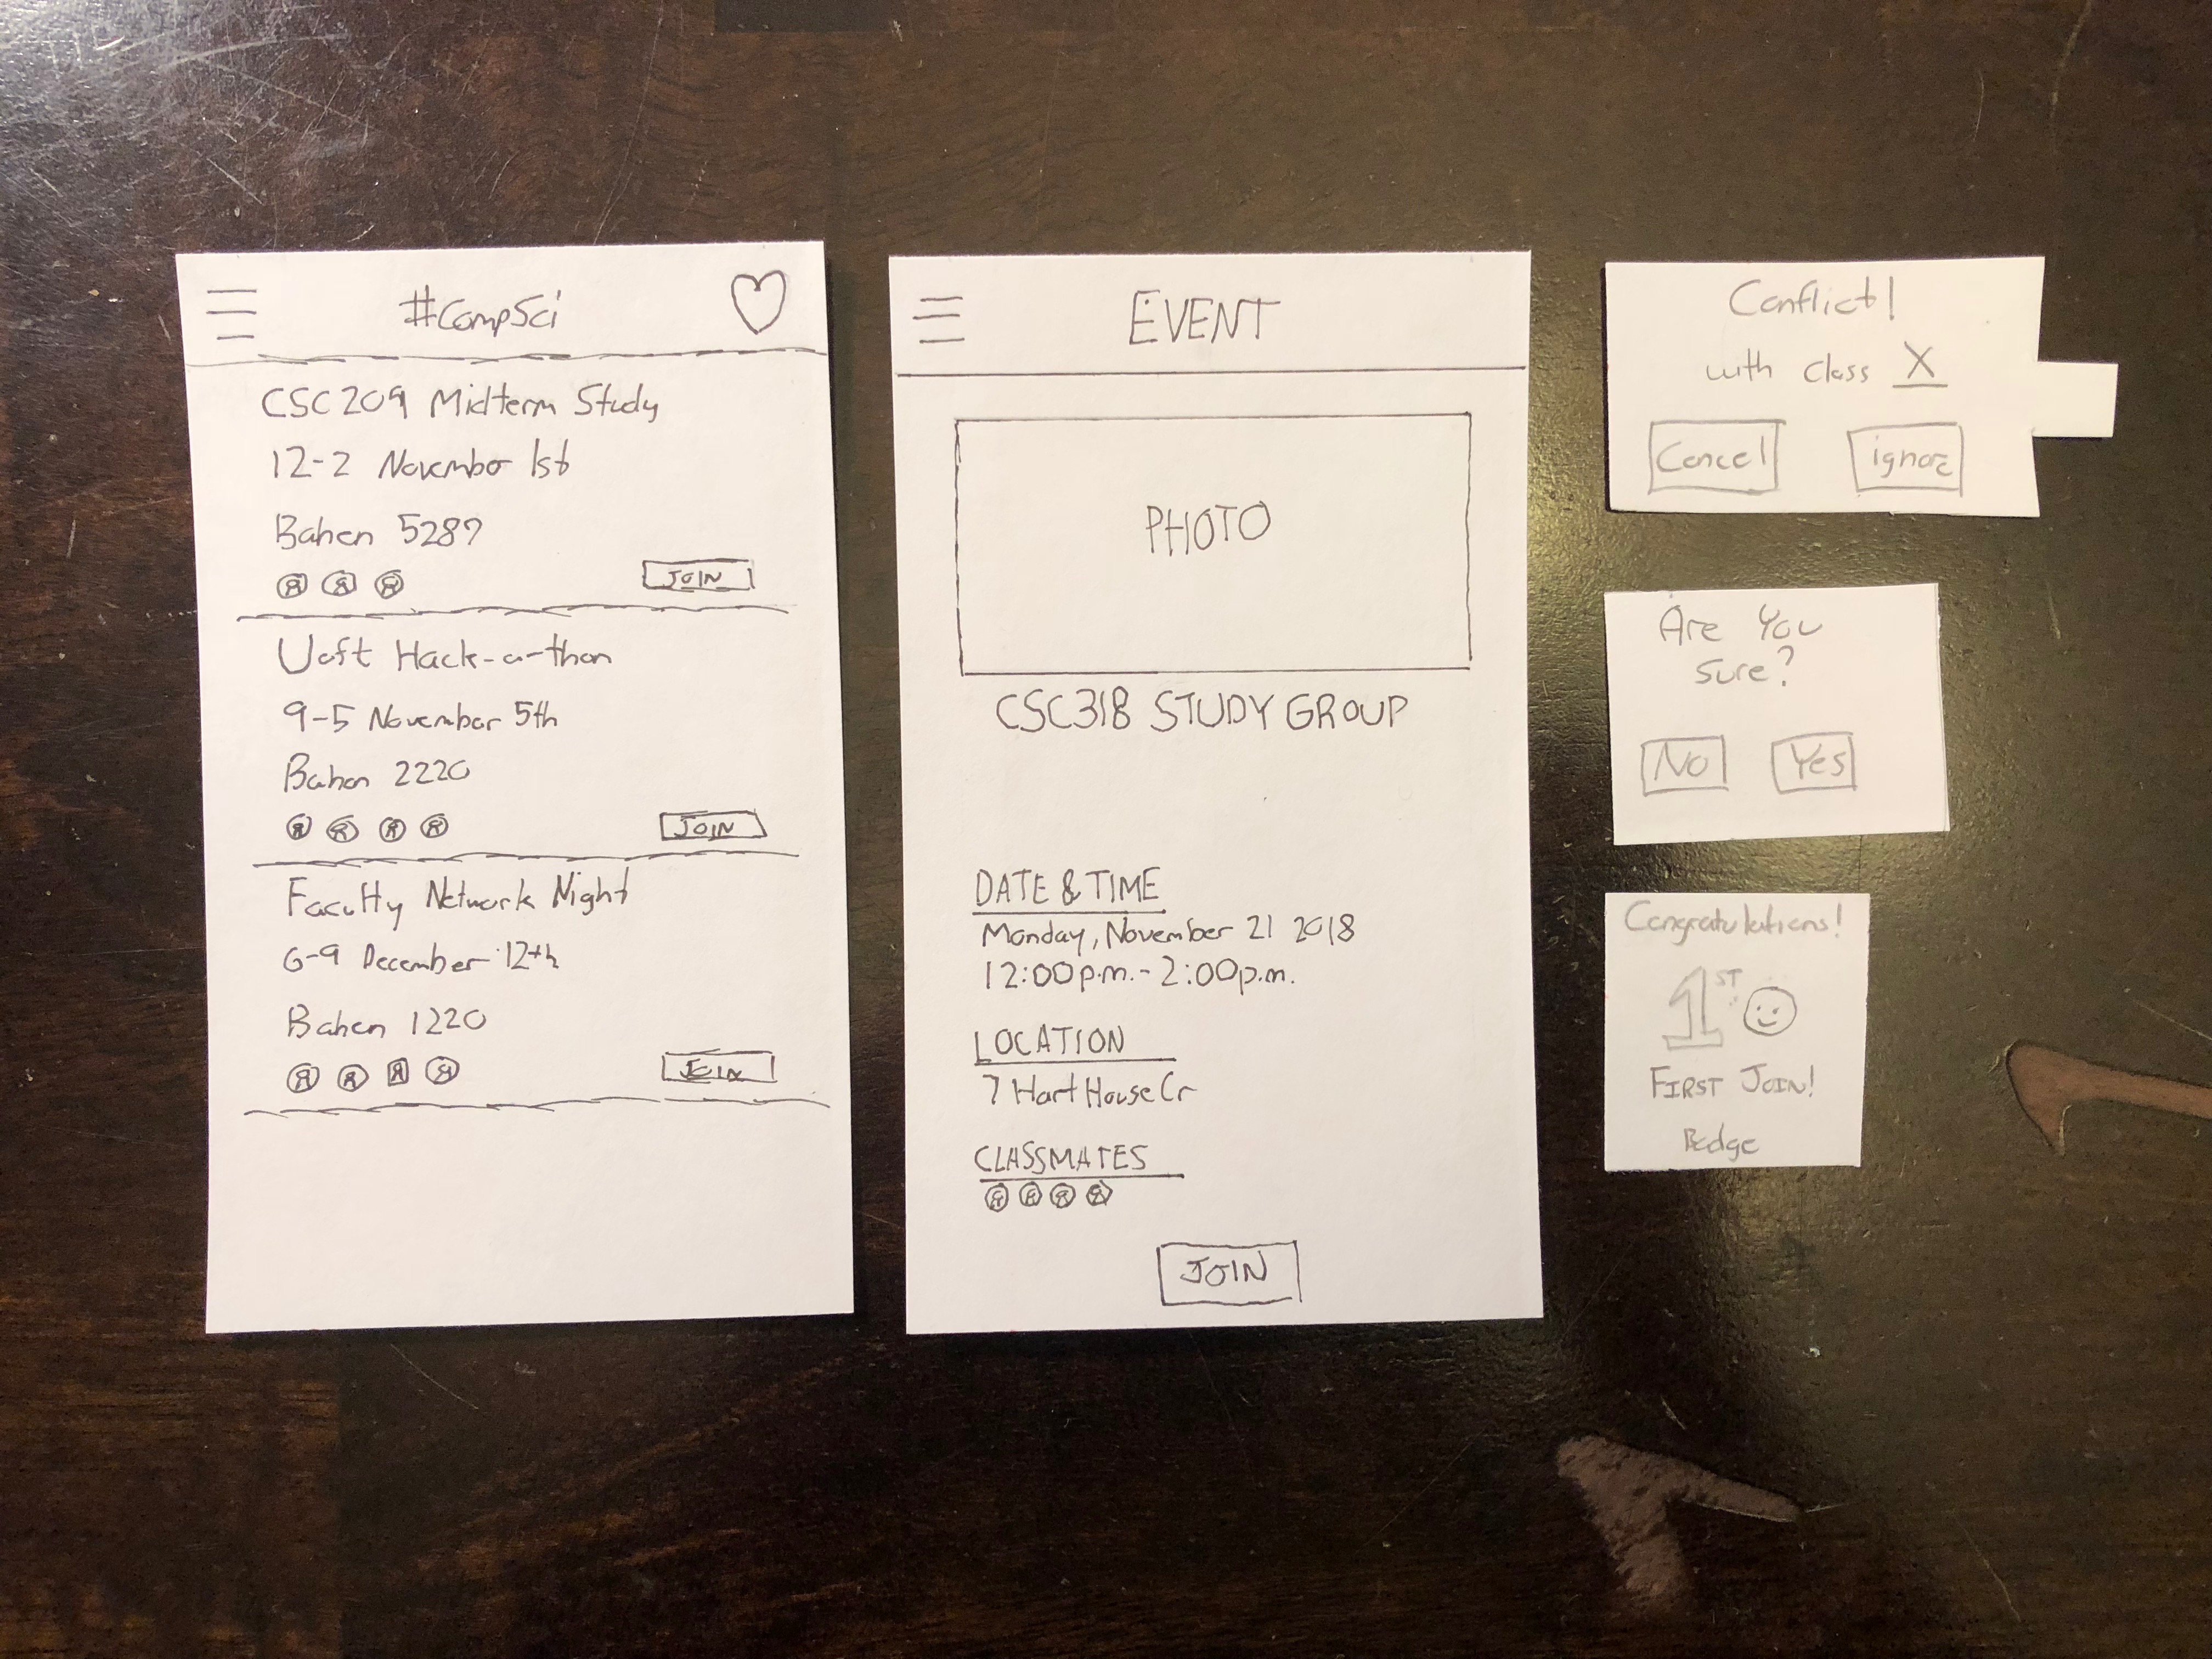 #CompSci
CSC 209 Midterm Study
12-2 November 1st
Bahen 5287
JOIN
Uoft Hack-a-thon
9-5 November 5th
Bahen 2220
JOIN
Faculty Network Night
6-9 December 12th
Bahen 1220
JOIN
EVENT
PHOTO
CSC318 STUDY GROUP
DATE & TIME
Monday, November 21 2018
12:00p.m. - 2:00p.m.
LOCATION
7 Hart House Cr
CLASSMATES
JOIN
Conflict!
with class X
Cancel ignore
Are You
sure?
No Yes
Congratulations!
1ST
FIRST JOIN!
Badge